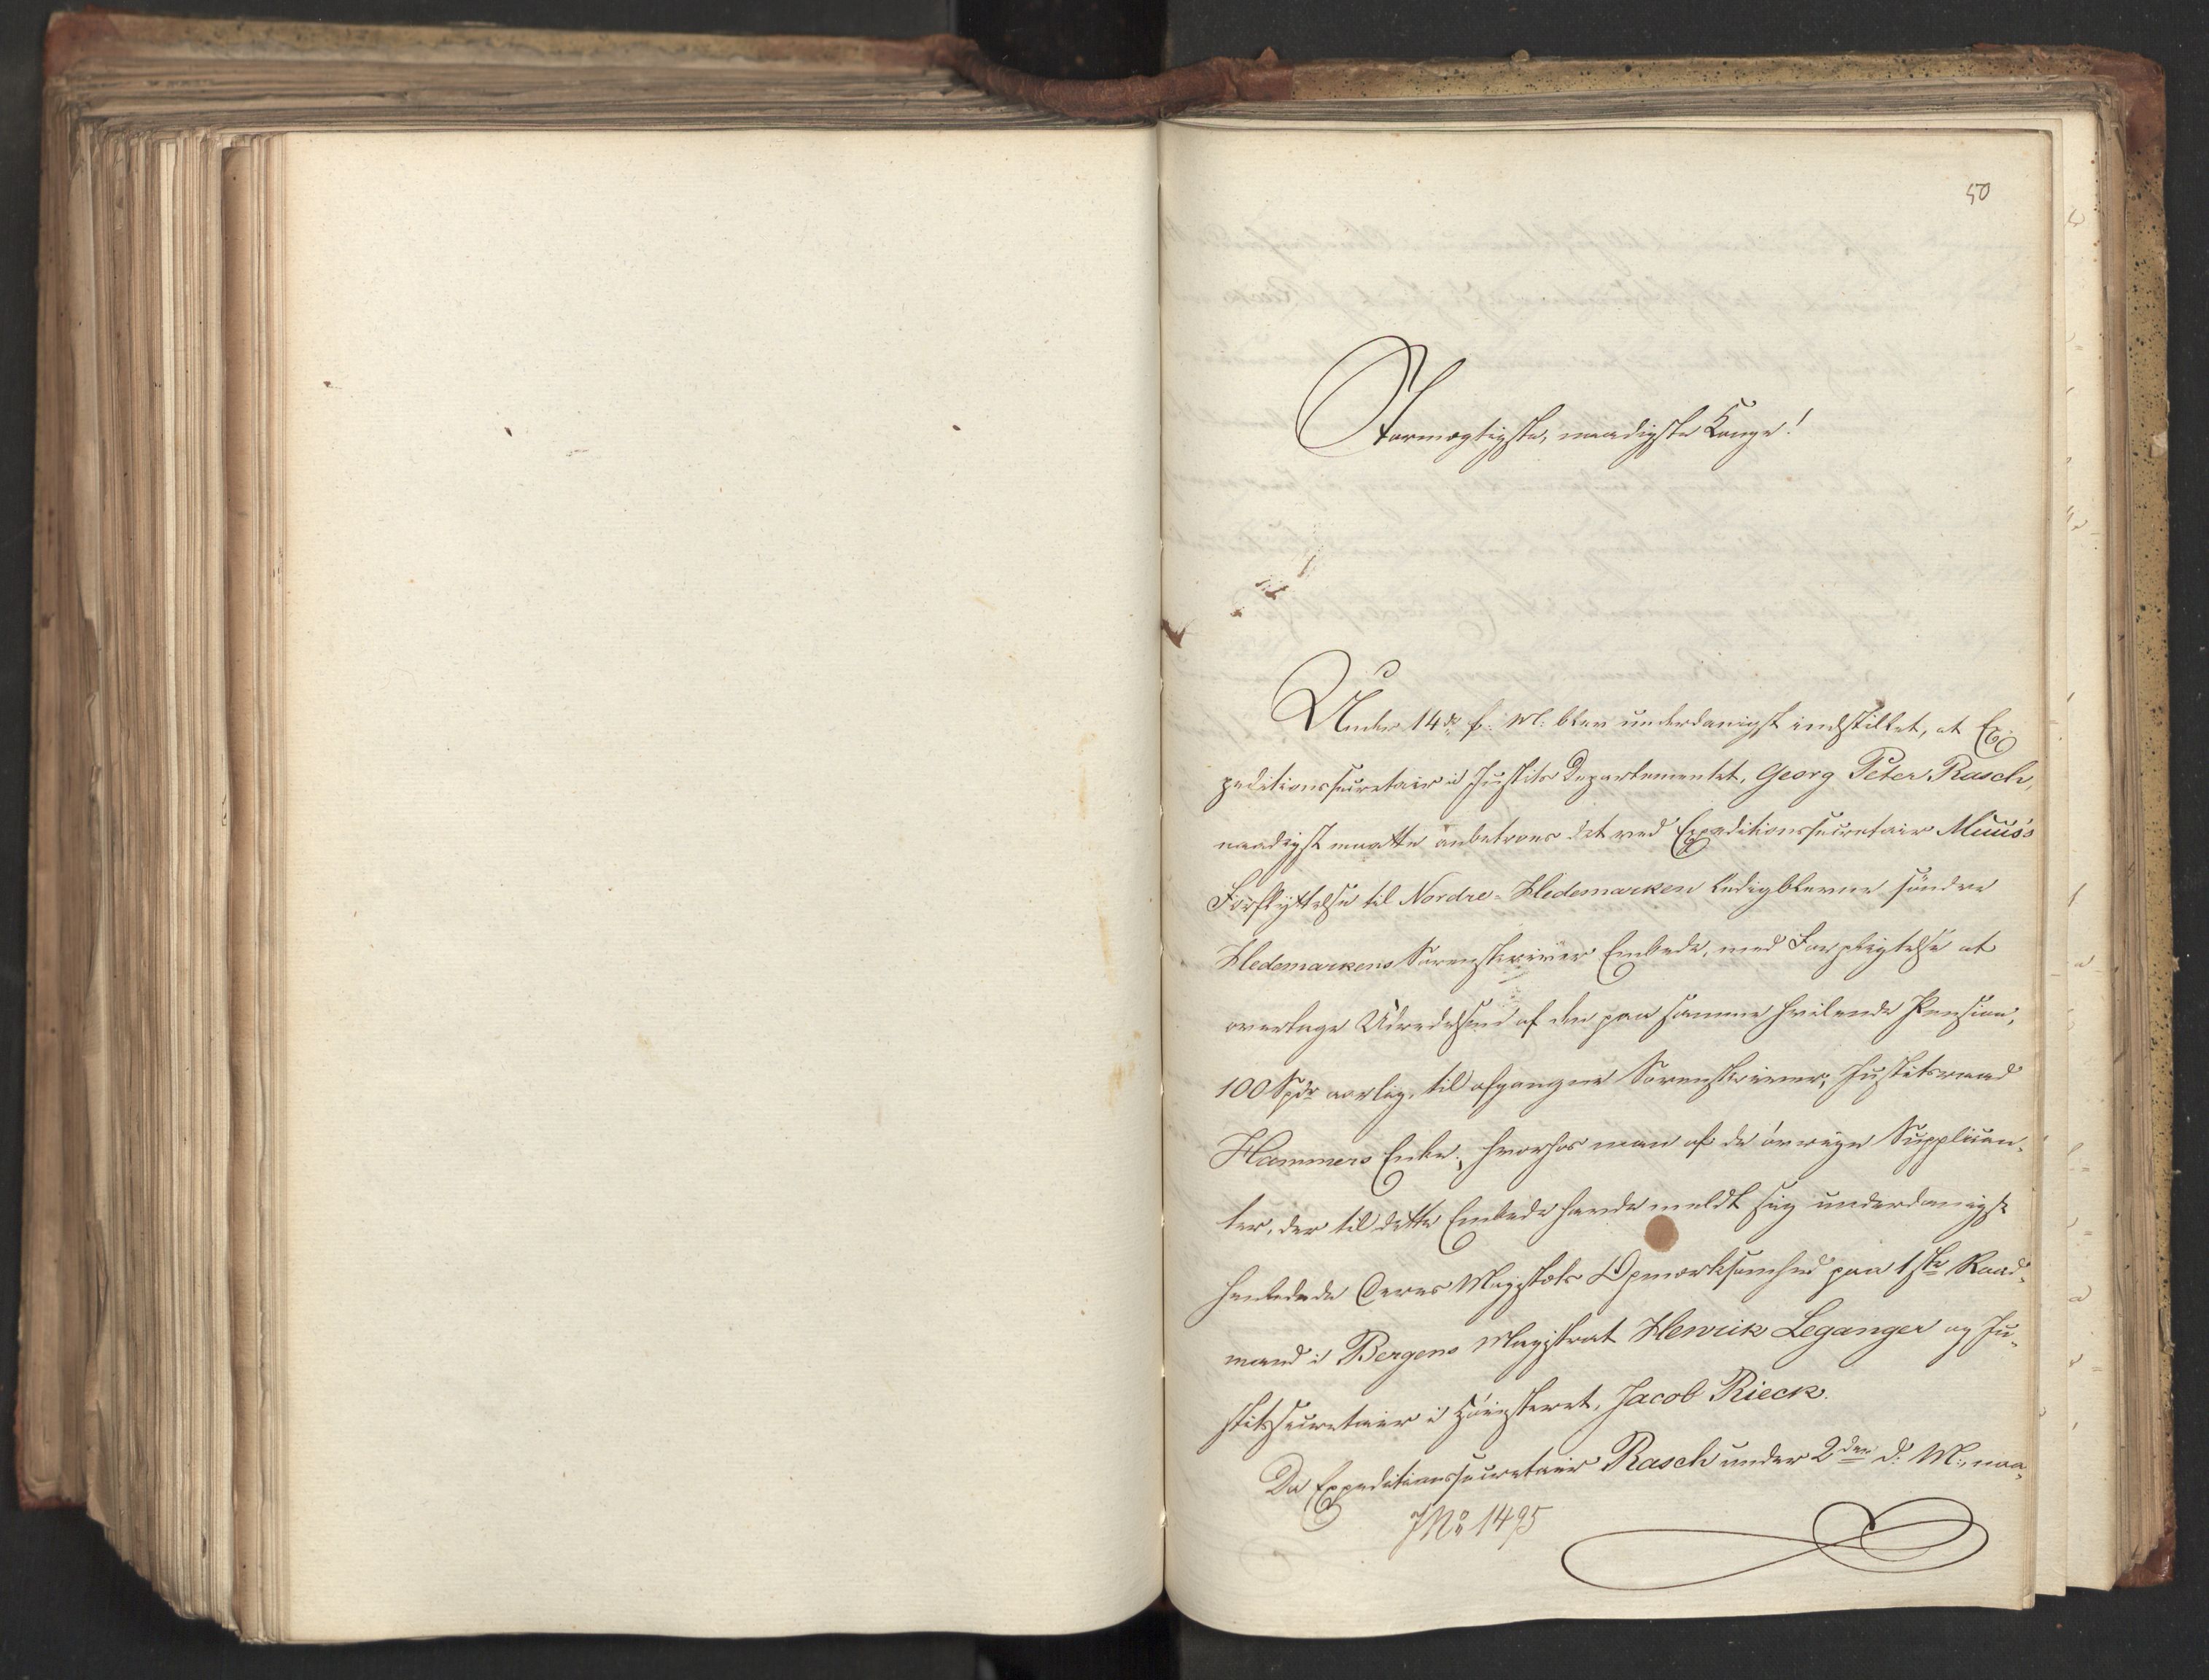 50
Stormægtigste, naadigste Konge!
Under 14de f: M: blev underdanigst indstillet, at Ex-
peditionssecretair i Justits Departementet, Georg Peter Rasch,
naadigst maatte anbetroes det ved Expeditionssecretair Muus's
Forflyttelse til Nordre-Hedemarken ledigblevne söndre
Hedemarkens Sorenskriver Embede, med Forpligtelse at
overtage Udredelsen af den paa samme hvilende Pension,
100 Spdr aarlig, til afgangne Sorenskriver, Justitsraad
Hammers Enke; hvorhos man af de övrige Supplican-
ter, der til dette Embede havde meldt sig underdanigst
henledede Deres Majestæts Opmærksomhed paa 1ste Raad-
mand i Bergens Magistrat Henrik Leganger og Ju-
stitssecretair i Höiesteret, Jacob Rieck.
Da Expeditionssecretair Rasch under 2den d: M:, naa-
JNo 1495